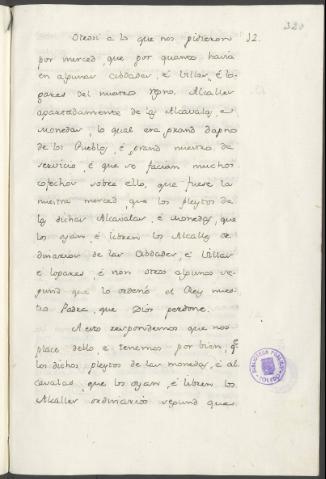 320
Otrosi a lo que nos pidieron 12.
por merced, que por quanto havia
en algunas Cibdades, é Villas, é lo-
gares del nuestro rgno. Alcalles
apartadamente de las Alcavalas, e
monedas, lo qual era grand dapno
de los Pueblos, é grand mengua de
servicio, é que se facian muchos
cohechos sobre ello, que fuese la
nuestra merced, que los pleytos de
las dichas Alcavalas, é monedas, que
los oyan, é libren los Alcalles or-
dinarios de las Cibdades, é Villas
é logares, é non otros algunos se-
gund que lo ordenó el Rey nues-
tro Padre, que Dios perdone.
A esto respondemos que nos
place dello e tenemos por bien q.e
los dichos pleytos de las monedas, é al-
cavalas, que los oyan, é libren los
Alcalles ordinarios segund que
BIBLIOTECA PUBLICA
TOLEDO